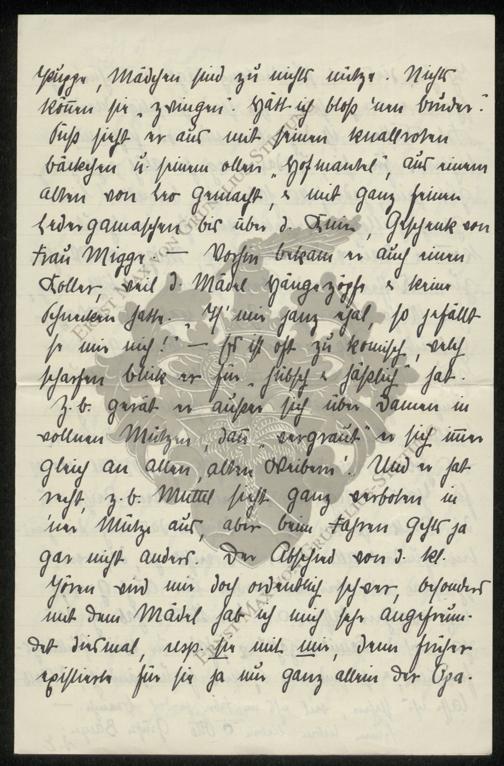 Puppe, Mädchen sind zu nichts nütze. Nichts
können sie „zwingen“. Hätt ich bloß 'nen bruder“.
Süß sieht er aus mit seinen knallroten
bäckchen u. seinem ollen „Hofmantel“, aus einem
alten von Leo gemacht, u. mit ganz feinen
Ledergamaschen bis über d. Knie, Geschenk von
Frau Migge. — Vorhin bekam er auch einen
Koller, weil d. Mädel Hängezöpfe u. keine
Schnecken hatte. „Is' mir ganz ejal, so gefällt
se mir nich!“ — Es ist oft zu komisch, welch
scharfen blick er für „hübsch u. häßlich“ hat.
Z. b. gerät er außer sich über Damen in
wollnen Mützen, dann „vergraut“ er sich immer
gleich an allen „alten Weibern“. Und er hat
recht, z. b. Muttel sieht ganz verboten in
'ner Mütze aus, aber beim Fahren gehts ja
gar nicht anders. Der Abschied von d. kl.
Hören wird mir doch ordentlich schwer, besonders
mit dem Mädel hab ich mich sehr angefreun-
det diesmal, resp. sie mit mir, denn früher
existierte für sie ja nur ganz allein der Opa.
ERNST MAX VON GRUNELIUS-STIFTUNG
ERNST MAX VON GRUNELIUS-STIFTUNG